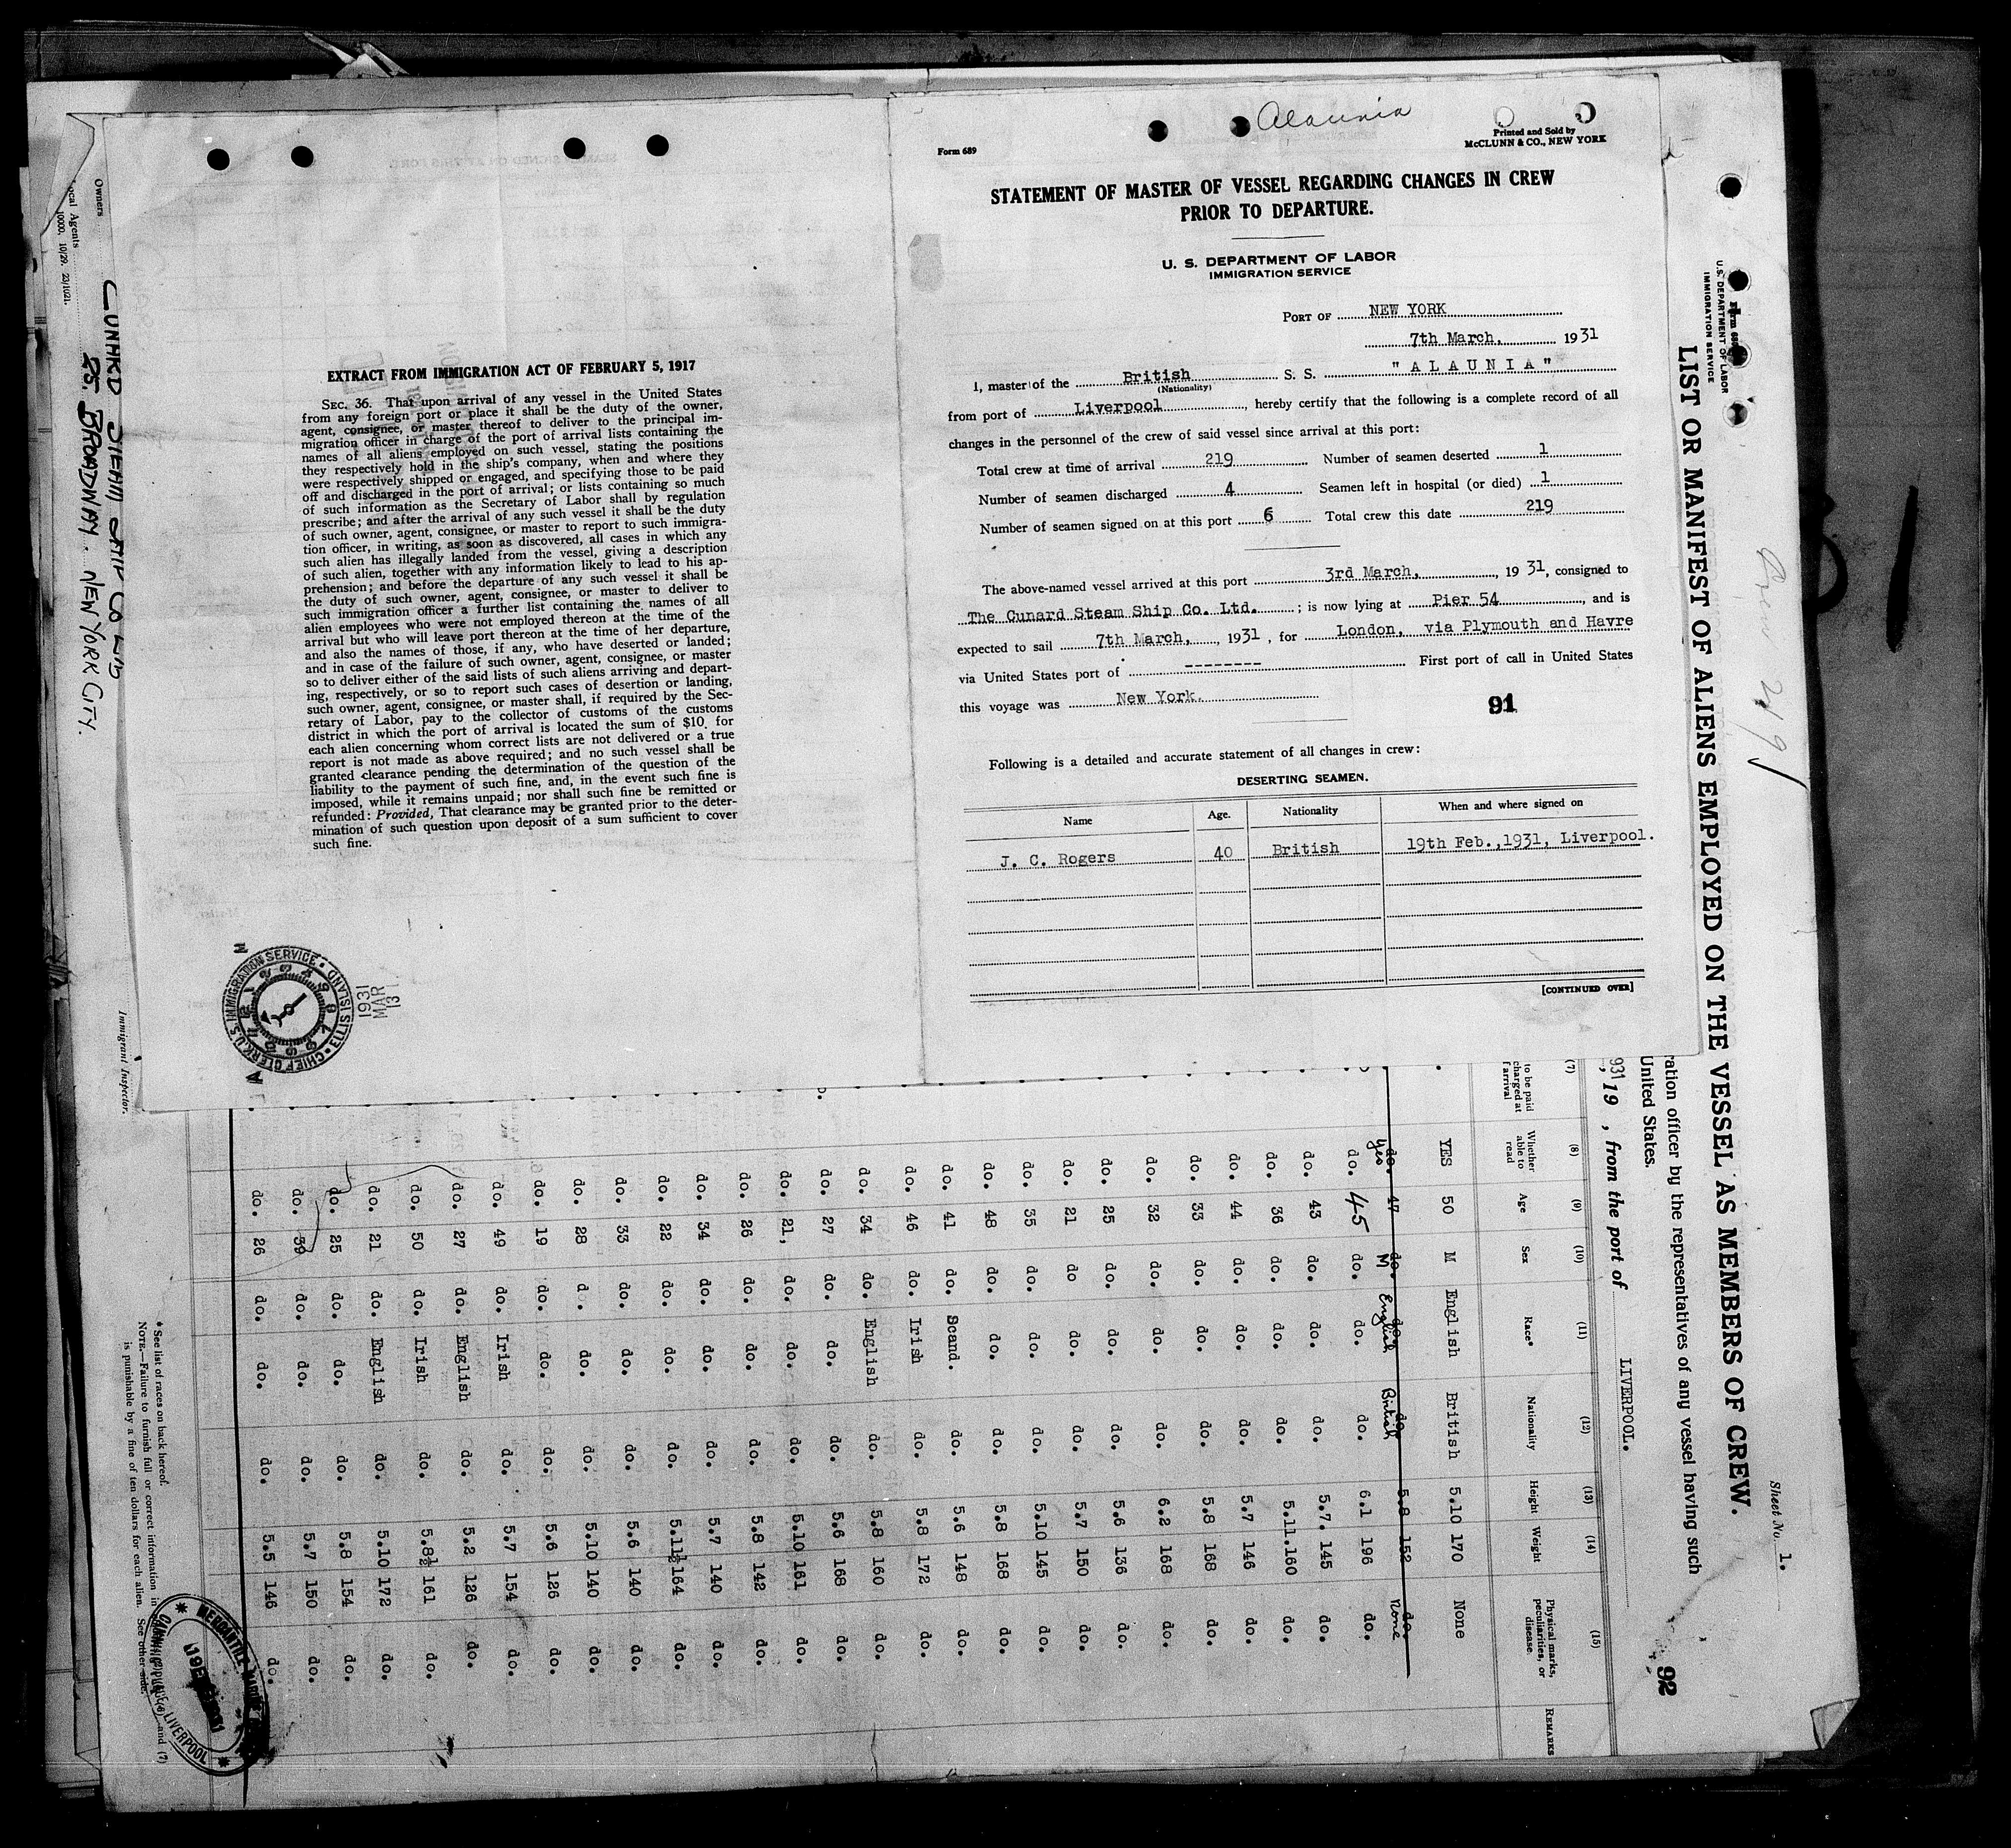 Alaunia
Form 689
Printed and Sold by
McCLUNN & CO., NEW YORK
STATEMENT OF MASTER OF VESSEL REGARDING CHANGES IN CREW
PRIOR TO DEPARTURE.
U. S. DEPARTMENT OF LABOR
IMMIGRATION SERVICE
PORT OF NEW YORK
7th March, 1931
I, master of the British S. S. "ALAUNIA"
(Nationality)
from port of Liverpool, hereby certify that the following is a complete record of all
changes in the personnel of the crew of said vessel since arrival at this port:
Total crew at time of arrival 219 Number of seamen deserted 1
Number of seamen discharged 4 Seamen left in hospital (or died) 1
Number of seamen signed on at this port 6 Total crew this date 219
The above-named vessel arrived at this port 3rd March, 1931, consigned to
The Cunard Steam Ship Co. Ltd. ; is now lying at Pier 54, and is
expected to sail 7th March, 1931, for London, via Plymouth and Havre
via United States port of -------- First port of call in United States
this voyage was New York.
91
Following is a detailed and accurate statement of all changes in crew:
DESERTING SEAMEN.
Name Age. Nationality When and where signed on
J. C. Rogers 40 British 19th Feb.,1931, Liverpool.
[CONTINUED OVER]
EXTRACT FROM IMMIGRATION ACT OF FEBRUARY 5, 1917
SEC. 36. That upon arrival of any vessel in the United States
from any foreign port or place it shall be the duty of the owner,
agent, consignee, or master thereof to deliver to the principal im-
migration officer in charge of the port of arrival lists containing the
names of all aliens employed on such vessel, stating the positions
they respectively hold in the ship's company, when and where they
were respectively shipped or engaged, and specifying those to be paid
off and discharged in the port of arrival; or lists containing so much
of such information as the Secretary of Labor shall by regulation
prescribe; and after the arrival of any such vessel it shall be the duty
of such owner, agent, consignee, or master to report to such immigra-
tion officer, in writing, as soon as discovered, all cases in which any
such alien has illegally landed from the vessel, giving a description
of such alien, together with any information likely to lead to his ap-
prehension; and before the departure of any such vessel it shall be
the duty of such owner, agent, consignee, or master to deliver to
such immigration officer a further list containing the names of all
alien employees who were not employed thereon at the time of the
arrival but who will leave port thereon at the time of her departure,
and also the names of those, if any, who have deserted or landed;
and in case of the failure of such owner, agent, consignee, or master
so to deliver either of the said lists of such aliens arriving and depart-
ing, respectively, or so to report such cases of desertion or landing,
such owner, agent, consignee, or master shall, if required by the Sec-
retary of Labor, pay to the collector of customs of the customs
district in which the port of arrival is located the sum of $10 for
each alien concerning whom correct lists are not delivered or a true
report is not made as above required; and no such vessel shall be
granted clearance pending the determination of the question of the
liability to the payment of such fine, and, in the event such fine is
imposed, while it remains unpaid; nor shall such fine be remitted or
refunded: Provided, That clearance may be granted prior to the deter-
mination of such question upon deposit of a sum sufficient to cover
such fine.
CHIEF CLERK, U.S. IMMIGRATION SERVICE · ELLIS ISLAND
1931
MAR
13
Sheet No. 1.
92
U.S. DEPARTMENT OF LABOR
IMMIGRATION SERVICE
LIST OR MANIFEST OF ALIENS EMPLOYED ON THE VESSEL AS MEMBERS OF CREW.
ration officer by the representatives of any vessel having such
United States.
931 19 , from the port of LIVERPOOL.
(7) (8) (9) (10) (11) (12) (13) (14) (15)
to be paid
charged at
f arrival
Whether
able to
read
Age Sex Race* Nationality Height Weight
Physical marks,
peculiarities, or
disease.
REMARKS
YES 50 M English British 5.10 170 None
do. 47 do. do. do. 5.8 152 do.
yes M English British None
do. 45 do. do. do. 6.1 196 do.
do. 43 do. do. do. 5.7. 145 do.
do. 36 do. do. do. 5.11.160 do.
do. 44 do. do. do. 5.7 146 do.
do. 33 do. do. do. 5.8 168 do.
do. 32 do. do. do. 6.2 168 do.
do. 25 do. do. do. 5.6 136 do.
do. 21 do do. do. 5.7 150 do.
do. 35 do. do. do. 5.10 145 do.
do. 48 do. do. do. 5.8 168 do.
do. 41 do. Scand. do. 5.6 148 do.
do. 46 do. Irish do. 5.8 172 do.
do. 34 do. English do. 5.8 160 do.
do. 27 do. do. do. 5.6 168 do.
do. 21, do. do. do. 5.10 161 do.
do. 26 do. do. do. 5.8 142 do.
do. 34 do. do. do. 5.7 140 do.
do. 22 do. do. do. 5.11½ 164 do.
do. 33 do. do. do. 5.6 140 do.
do. 28 d. do. do. 5.10 140 do.
do. 19 do. do. do. 5.6 126 do.
do. 49 do. Irish do. 5.7 154 do.
do. 27 do. English do. 5.2 126 do.
do. 50 do. Irish do. 5.8½ 161 do.
do. 21 do. English do. 5.10 172 do.
do. 25 do. do. do. 5.8 154 do.
do. 39 do. do. do. 5.7 150 do.
do. 26 do. do. do. 5.5 146 do.
* See list of races on back hereof.
NOTE.—Failure to furnish full or correct information in
is punishable by a fine of ten dollars for each alien. See other side.
and (7)
MERCANTILE MARINE
LIVERPOOL
Immigrant Inspector.
Owners CUNARD STEAM SHIP CO LTD
ocal Agents 25. BROADWAY. NEW YORK CITY.
10000, 10/29. 23/1021.